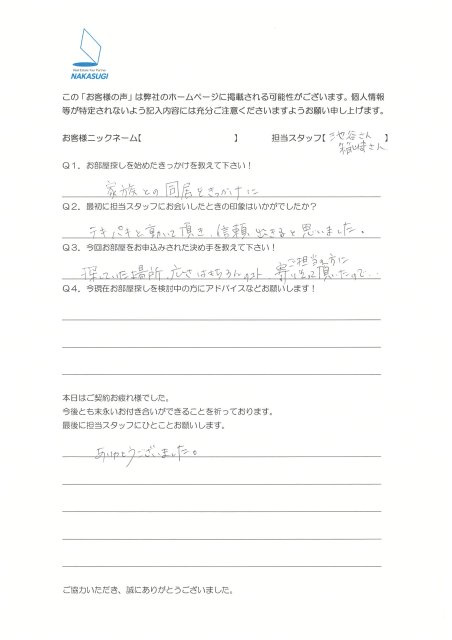 Real Estate Fun Partner
NAKASUGI
この「お客様の声」は弊社のホームページに掲載される可能性がございます。個人情報
等が特定されないよう記入内容には充分ご注意くださいますようお願い申し上げます。
お客様ニックネーム【 】 担当スタッフ【 池谷さん 】
さん
Q1．お部屋探しを始めたきっかけを教えて下さい！
家族との同居をきっかけに
Q2．最初に担当スタッフにお会いしたときの印象はいかがでしたか？
テキパキと動いて頂き、信頼できると思いました。
Q3．今回お部屋をお申込みされた決め手を教えて下さい！
ご担当の方に
探していた場所、広さはもちろん、コスト 寄り添って頂いたので…
Q4．今現在お部屋探しを検討中の方にアドバイスなどお願いします！
本日はご契約お疲れ様でした。
今後とも末永いお付き合いができることを祈っております。
最後に担当スタッフにひとことお願いします。
ありがとうございました。
ご協力いただき、誠にありがとうございました。